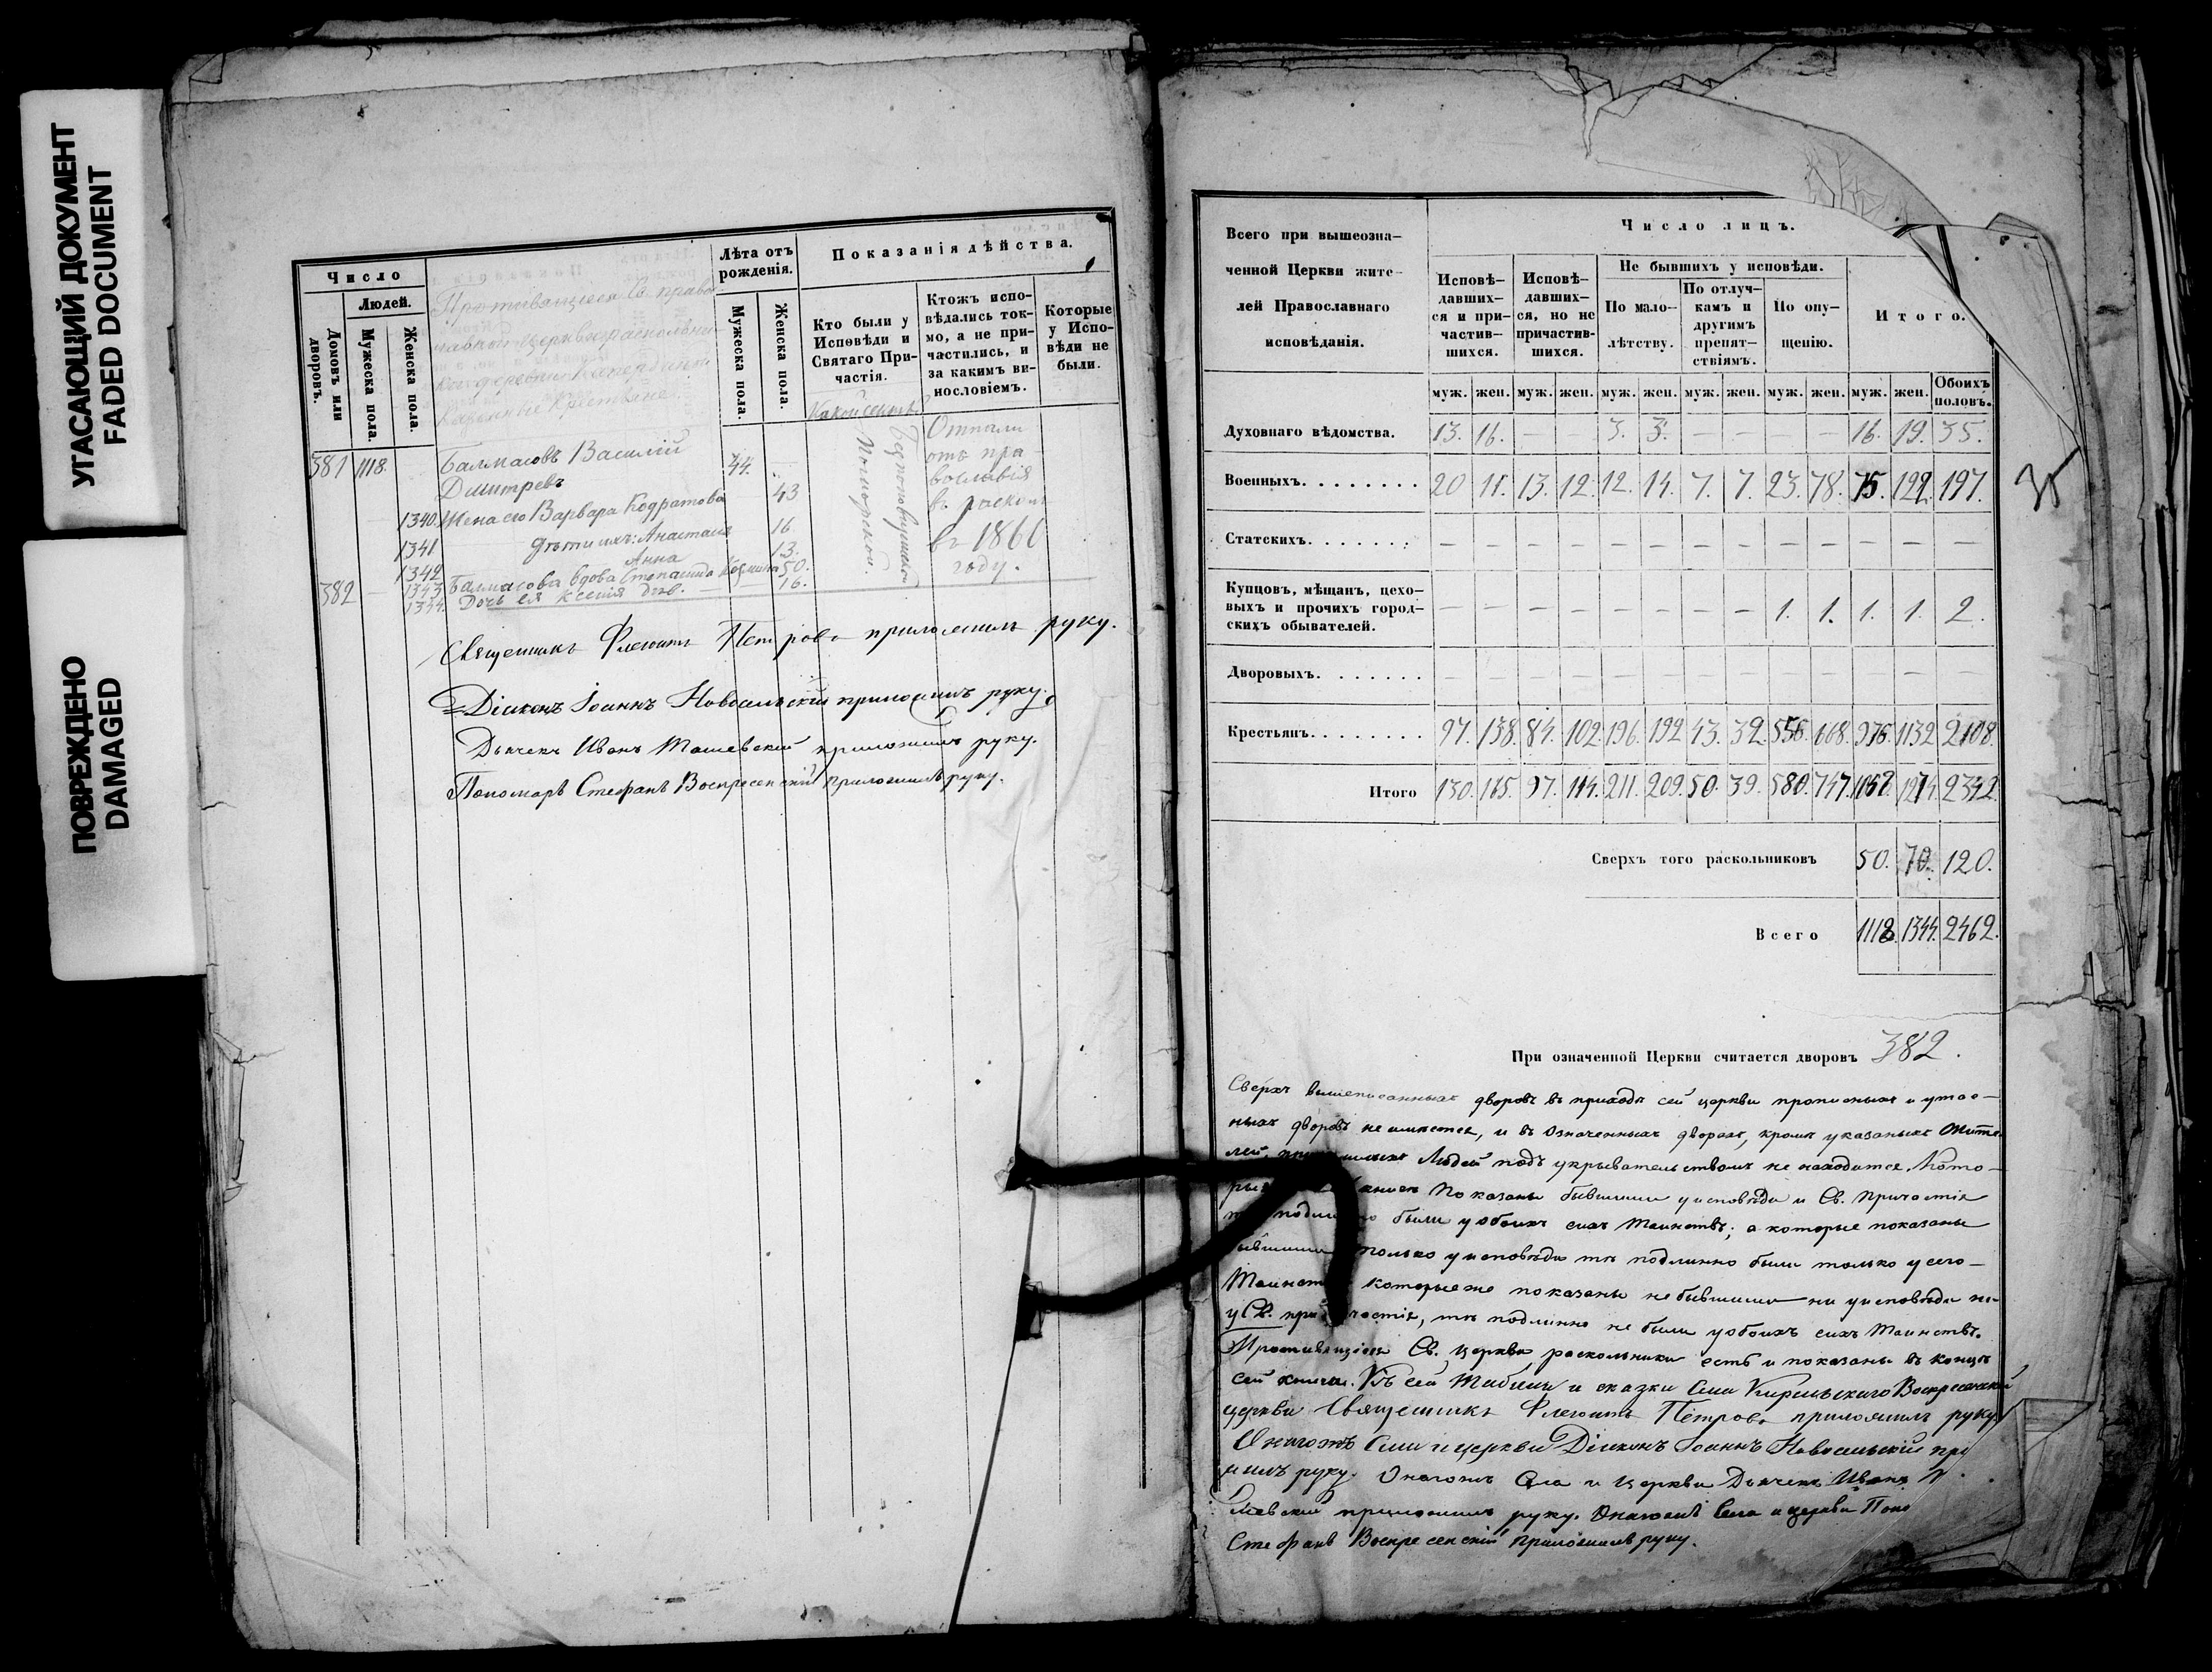 УГАСАЮЩИЙ ДОКУМЕНТ
FADED DOCUMENT
ПОВРЕЖДЕНО
DAMAGED
Число
Людей.
Домовъ или дворовъ.
Мужеска пола.
Женска пола.
Лѣта отъ рожденія.
Мужеска пола.
Женска пола.
Показанія дѣйства.
Кто были у Исповѣди и Святаго При-частія.
Ктожъ испо-вѣдались ток-мо, а не при-частились, и за какимъ ви-нословіемъ.
Которые у Испо-вѣди не были.
Какой секты.
Противящіеся Св. право-
славной церкви раскольни-
ки деревни
Крестьяне.
381 1118. Балмасовъ Василій 44.
Дмитревъ
1340. Жена его Варвара Кодратова 43
1341 Дѣти ихъ: Анастасія 16.
1342 Анна 13.
382 — 1343 Балмасова вдова Степанида Козмина 50.
1344. Дочь ея Ксенія дѣв. — 16.
Безпоповщинской
Поморской.
Отпали
отъ пра-
вославія
въ расколъ
въ 1860
году.
Священникъ Флегонтъ Петровъ приложилъ руку.
Діаконъ Іоаннъ Новосельскій приложилъ руку.
Дьячекъ Иванъ Ташевскій приложилъ руку.
Пономарь Стефанъ Воскресенскій приложилъ руку.
Всего при вышеозна-
ченной Церкви жите-
лей Православнаго
исповѣданія.
Число лицъ.
Исповѣ-давших-ся и при-частив-шихся.
Исповѣ-давших-ся, но не причастив-шихся.
Не бывшихъ у исповѣди.
По мало-лѣтству.
По отлуч-камъ и другимъ препят-ствіямъ.
По опу-щенію.
Итого.
муж. жен. муж. жен. муж. жен. муж. жен. муж. жен. муж. жен. Обоихъ половъ.
Духовнаго вѣдомства. 13. 16. — — 3. 3. — — — — 16. 19. 35.
Военныхъ. 20 11. 13. 12. 12. 14. 7. 7. 23. 78. 75. 122. 197.
Статскихъ. — — — — — — — — — — — — —
Купцовъ, мѣщанъ, цехо-
выхъ и прочихъ город-
скихъ обывателей. — — — — — — — — 1. 1. 1. 1. 2.
Дворовыхъ. — — — — — — — — — — — — —
Крестьянъ. 97. 138. 84. 102. 196. 192 43. 32. 556. 668. 976. 1132 2108.
Итого 130. 165. 97. 114. 211. 209. 50. 39. 580. 747. 1068. 1274. 2342.
Сверхъ того раскольниковъ 50. 70. 120.
Всего 1118. 1344. 2462.
При означенной Церкви считается дворовъ 382.
Сверхъ вышеписанныхъ дворовъ въ приходѣ сей церкви прописныхъ и утае-
ныхъ дворовъ не имѣется, и въ означенныхъ дворахъ, кромѣ указаныхъ жите-
лей, людей подъ укрывательствомъ не находится. Кото-
показаны бывшими у исповѣди и Св. Причастія
были у обоихъ сихъ Таинствъ; а которые показаны
бывшими только у исповѣди тѣ подлинно были только у сего—
Таинства которыеже показаны не бывшими ни у исповѣди ни
у Св. причастія, тѣ подлинно не были у обоихъ сихъ Таинствъ.
Противящіеся Св. церкви раскольники есть и показаны въ концѣ
сей книги. Къ сей Табели и сказки Села Воскресенской
церкви Священникъ Флегонтъ Петровъ приложилъ руку
Онагожъ Села и церкви Діаконъ Іоаннъ Новосельскій при
жилъ руку. Онагожъ Села и Церкви Дьячекъ Иванъ Т
шевскій приложилъ руку. Онагожъ Села и церкви Поно
Стефанъ Воскресенскій приложилъ руку.